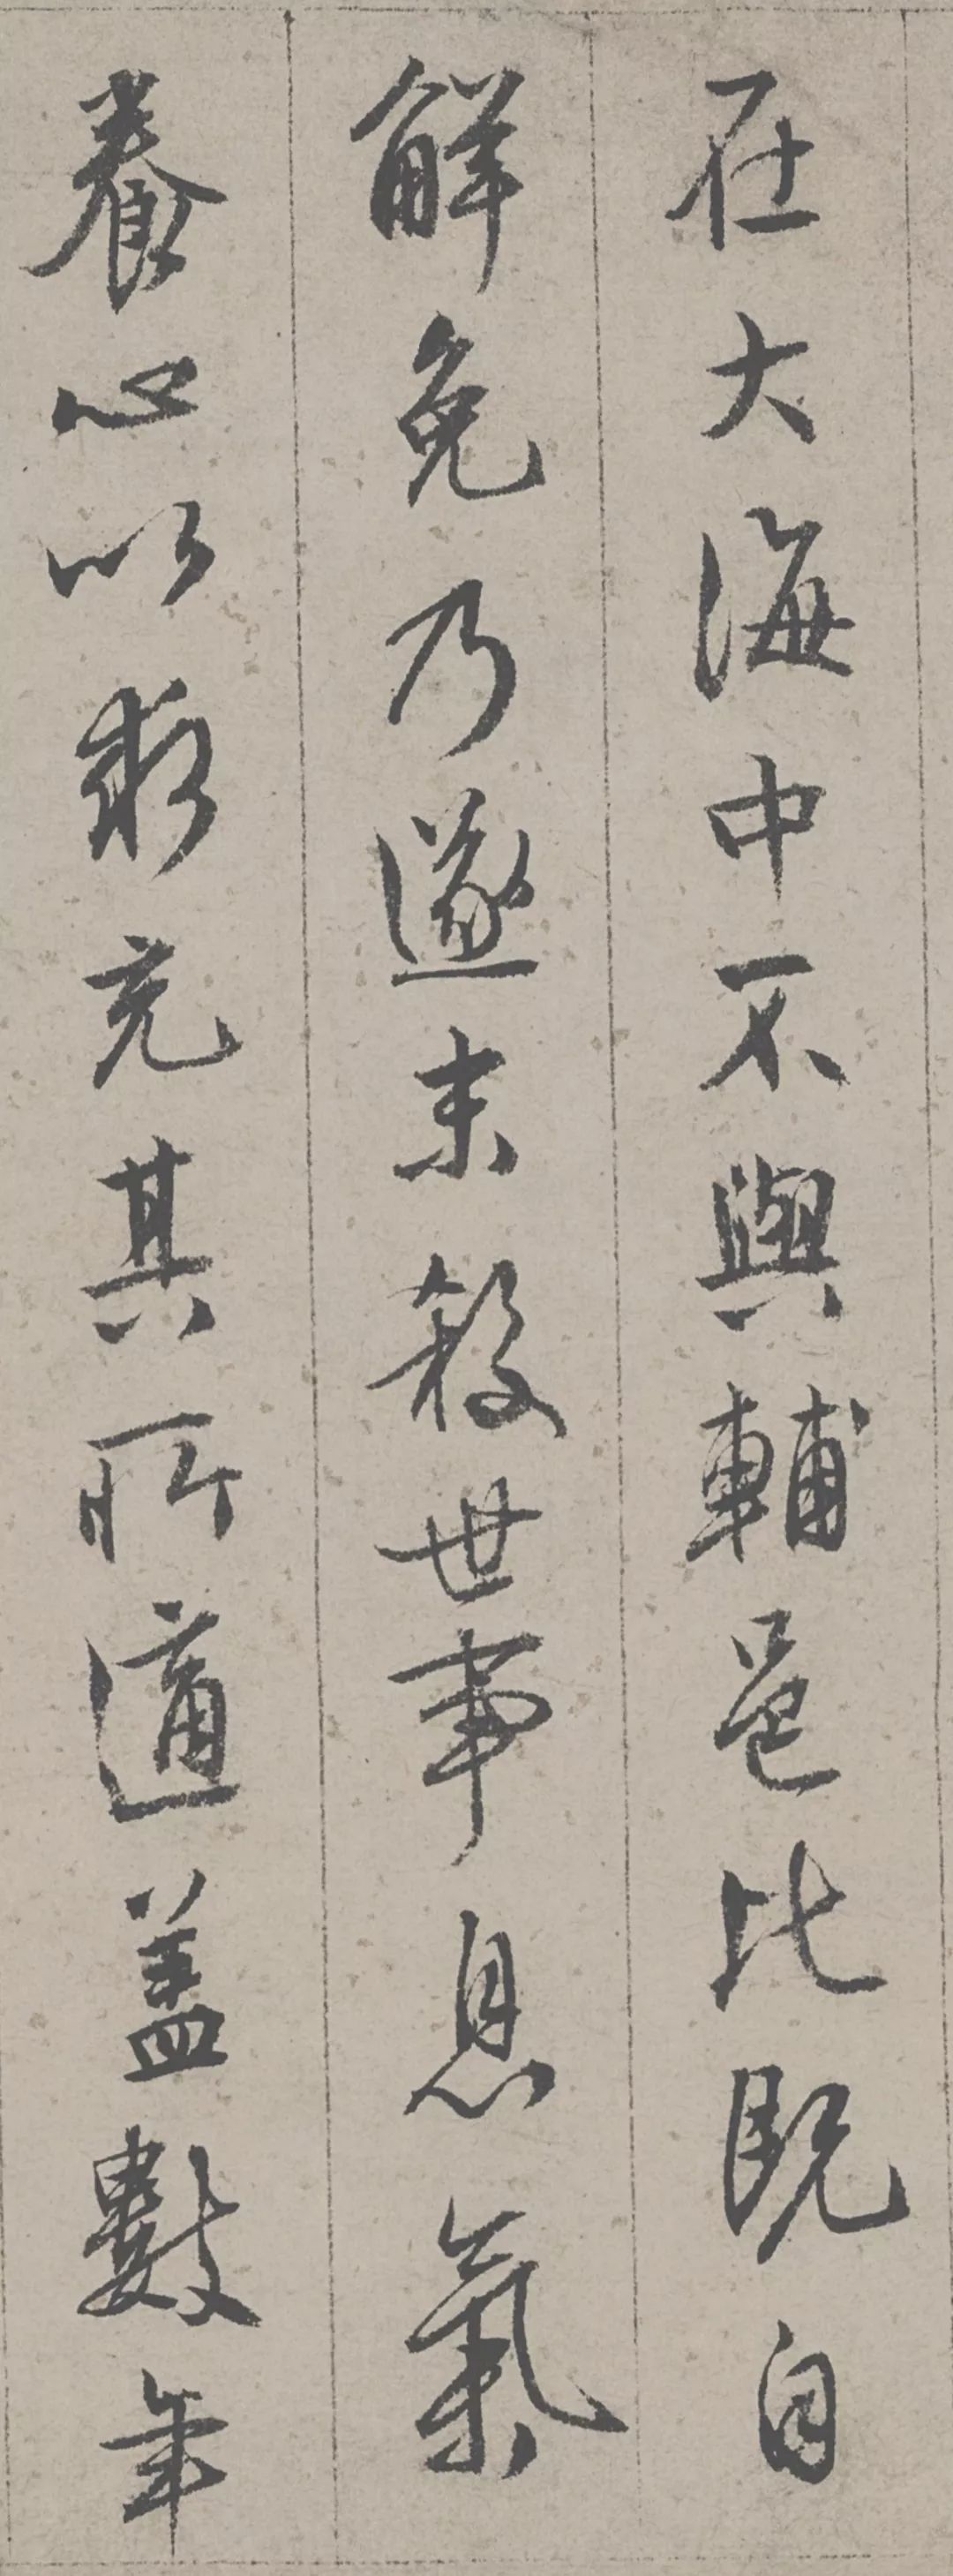 在大海中不與輔邑比既自
解免乃遂末殺世事息氣
養心以求充其所適蓋數年